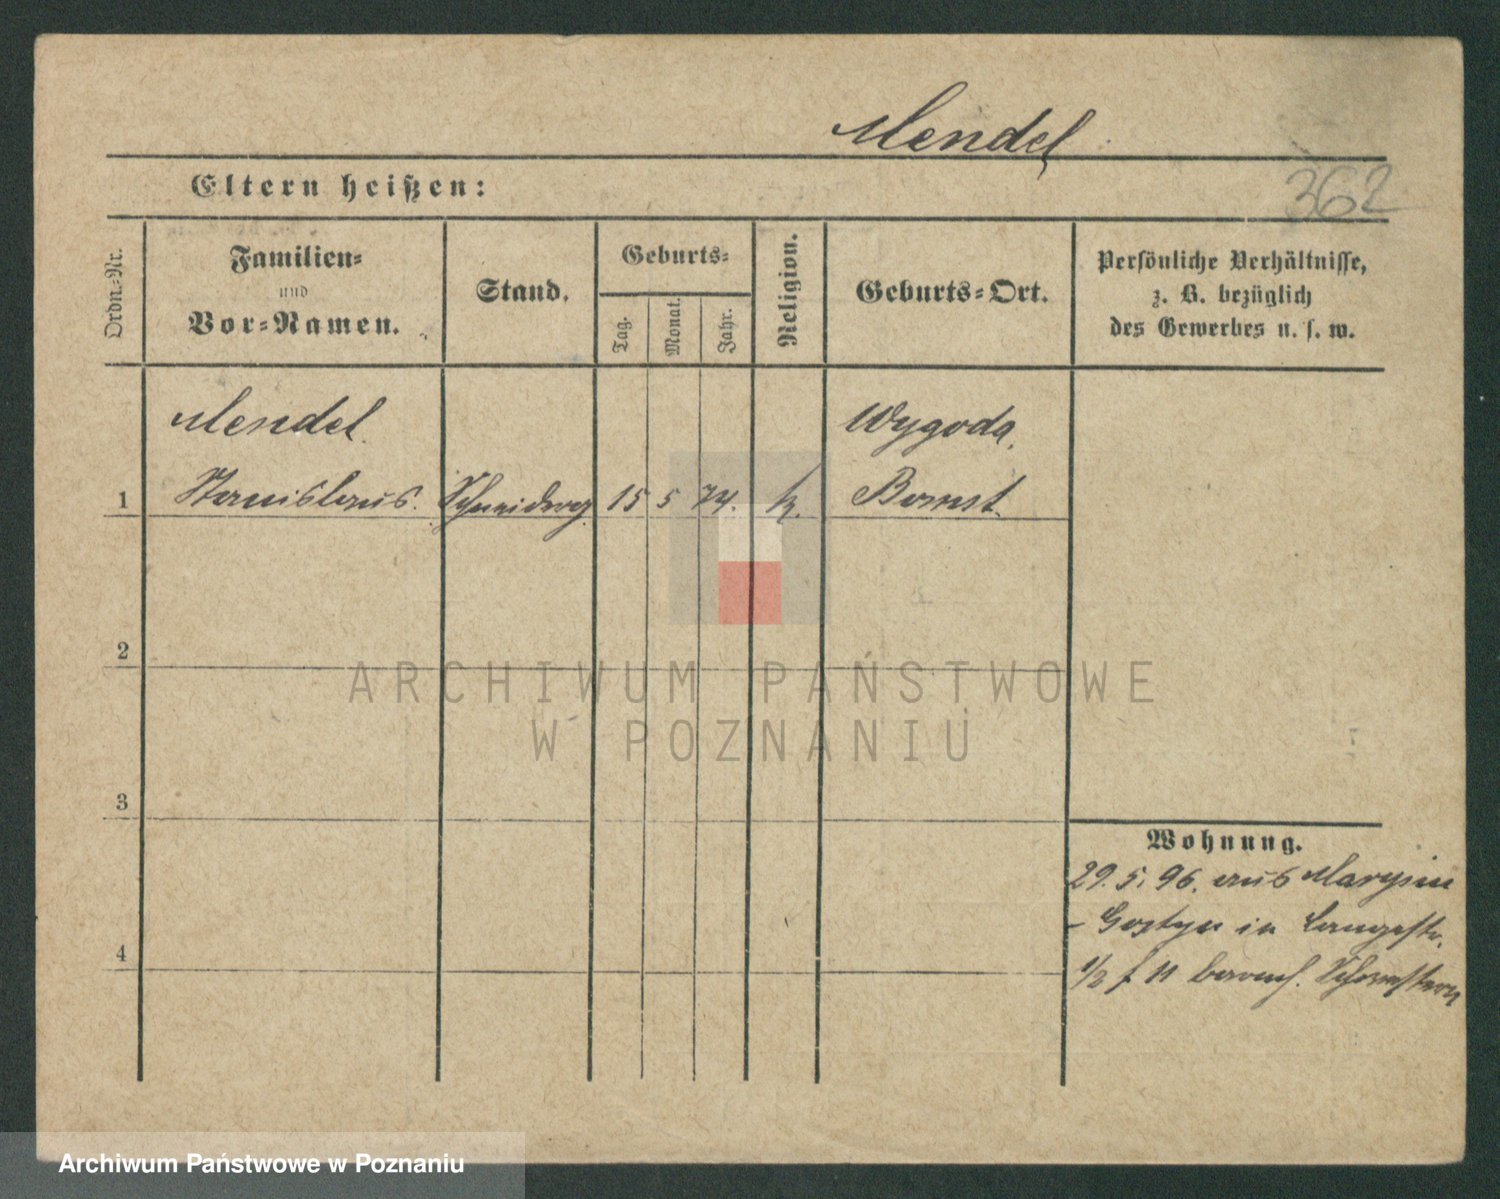 Mendel
362
Eltern heißen:
Ordn.-Nr.
Familien-
und
Vor-Namen.
Stand.
Geburts-
Tag.
Monat.
Jahr.
Religion.
Geburts-Ort.
Persönliche Verhältnisse,
z. B. bezüglich
des Gewerbes u. s. w.
Mendel
Wygoda,
1 Stanislaus. 15 5 74. k. Bomst
2
ARCHIWUM PAŃSTWOWE
W POZNANIU
3
Wohnung.
29. 5. 96. aus Marysin
- Gostyn in Langestr.
4
1/2 f 11
Archiwum Państwowe w Poznaniu